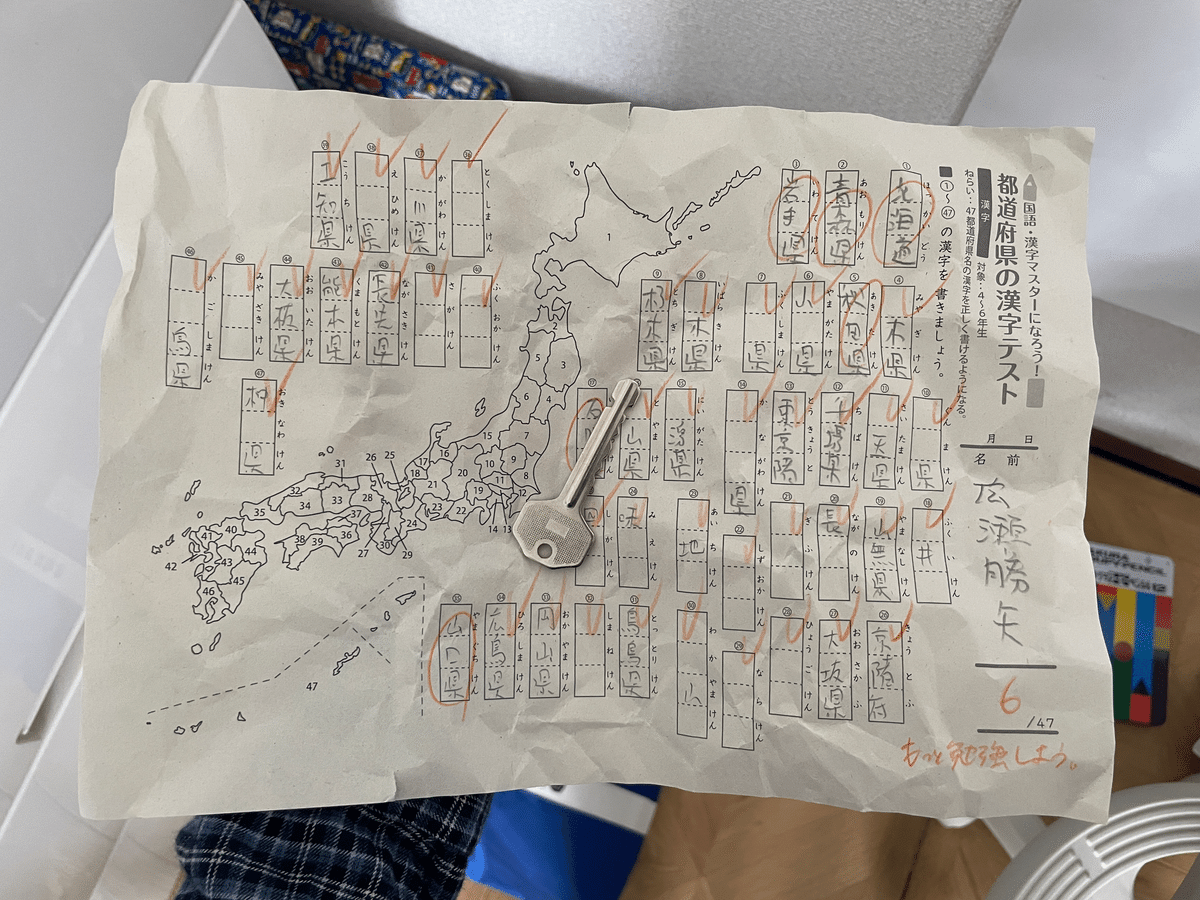 国語・漢字マスターになろう！
都道府県の漢字テスト
漢字
対象：4〜6年生
ねらい：47都道府県名の漢字を正しく書けるようになる。
■①〜㊼の漢字を書きましょう。
月 日
名前
広瀬勝矢
6
/47
もっと勉強しよう。
① ほっかいどう 北海道
② あおもりけん 青森県
③ いわてけん 岩手県
④ みやぎけん 木県
⑤ あきたけん 秋田県
⑥ やまがたけん 山県
⑦ ふくしまけん 県
⑧ いばらきけん 木県
⑨ とちぎけん 木県
⑩ ぐんまけん 県
⑪ さいたまけん 天県
⑫ ちばけん 千場県
⑬ とうきょうと 東京
⑭ かながわけん 県
⑮ にいがたけん 県
やまけん 山県
⑰
⑱ ふくいけん 井
⑲ やまなしけん 山無県
⑳ ながのけん 長
㉑ ぎふけん
㉒ しずおかけん
㉓ あいちけん 地
㉔ みえけん
しがけん
㉖ きょうとふ 京
㉗ おおさかふ 大坂県
㉘ ひょうごけん
㉙ ならけん
㉚ わかやまけん 山
㉛ とっとりけん 鳥鳥県
㉜ しまねけん
㉝ おかやまけん 岡山県
㉞ ひろしまけん 広鳥県
㉟ やまぐちけん 山口県
㊱ とくしまけん
㊲ かがわけん 川県
㊳ えひめけん 県
㊴ こうちけん 工知県
㊵ ふくおかけん
㊶ さがけん
㊷ ながさきけん 長先県
㊸ くまもとけん 能本県
㊹ おおいたけん 大板県
㊺ みやざきけん
㊻ かごしまけん 鳥県
㊼ おきなわけん 村県
1
2
3
4
5
6
7
8
9
10
11
12
13
14
15
16
17
18
19
20
21
22
23
24
25
26
27
28
29
30
31
32
33
34
35
36
37
38
39
40
41
42
43
44
45
46
47